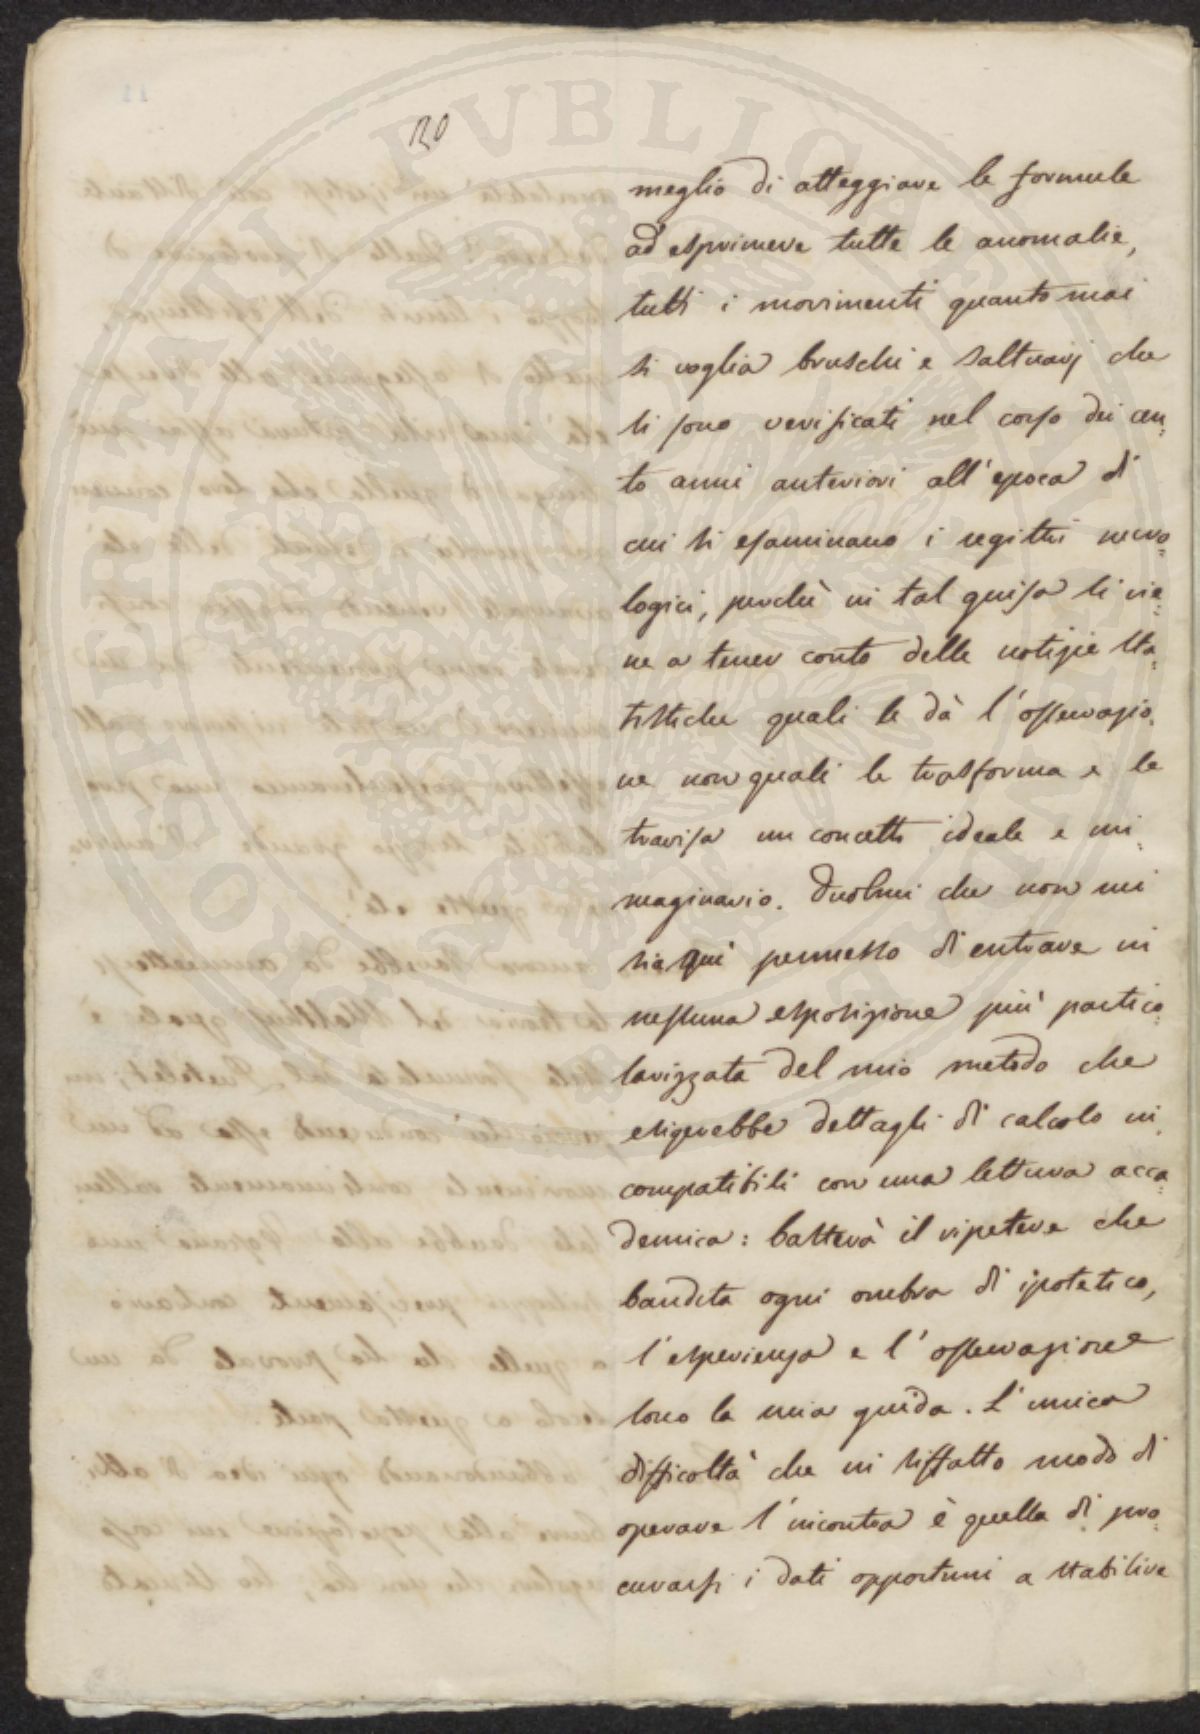 130
meglio di atteggiare le formule
ad esprimere tutte le anomalie,
tutti i movimenti quanto mai
si voglia bruschi e saltuarj che
si sono verificati nel corso dei cen=
to anni anteriori all'epoca di
cui si esaminano i registri necro=
logici, perchè in tal guisa si vie=
ne a tener conto delle notizie sta=
tistiche quali le dà l'osservazio=
ne non quali le trasforma e le
travisa un concetto ideale e im=
maginario. Duolmi che non mi
sia quì permesso di entrare in
nessuna esposizione più partico=
larizzata del mio metodo che
esigerebbe dettagli di calcolo in=
compatibili con una lettura acca=
demica: basterà il ripetere che
bandita ogni ombra di ipotetico,
l'esperienza e l'osservazione
sono la mia guida. L'unica
difficoltà che in siffatto modo di
operare s'incontra è quella di pro=
curarsi i dati opportuni a stabilire